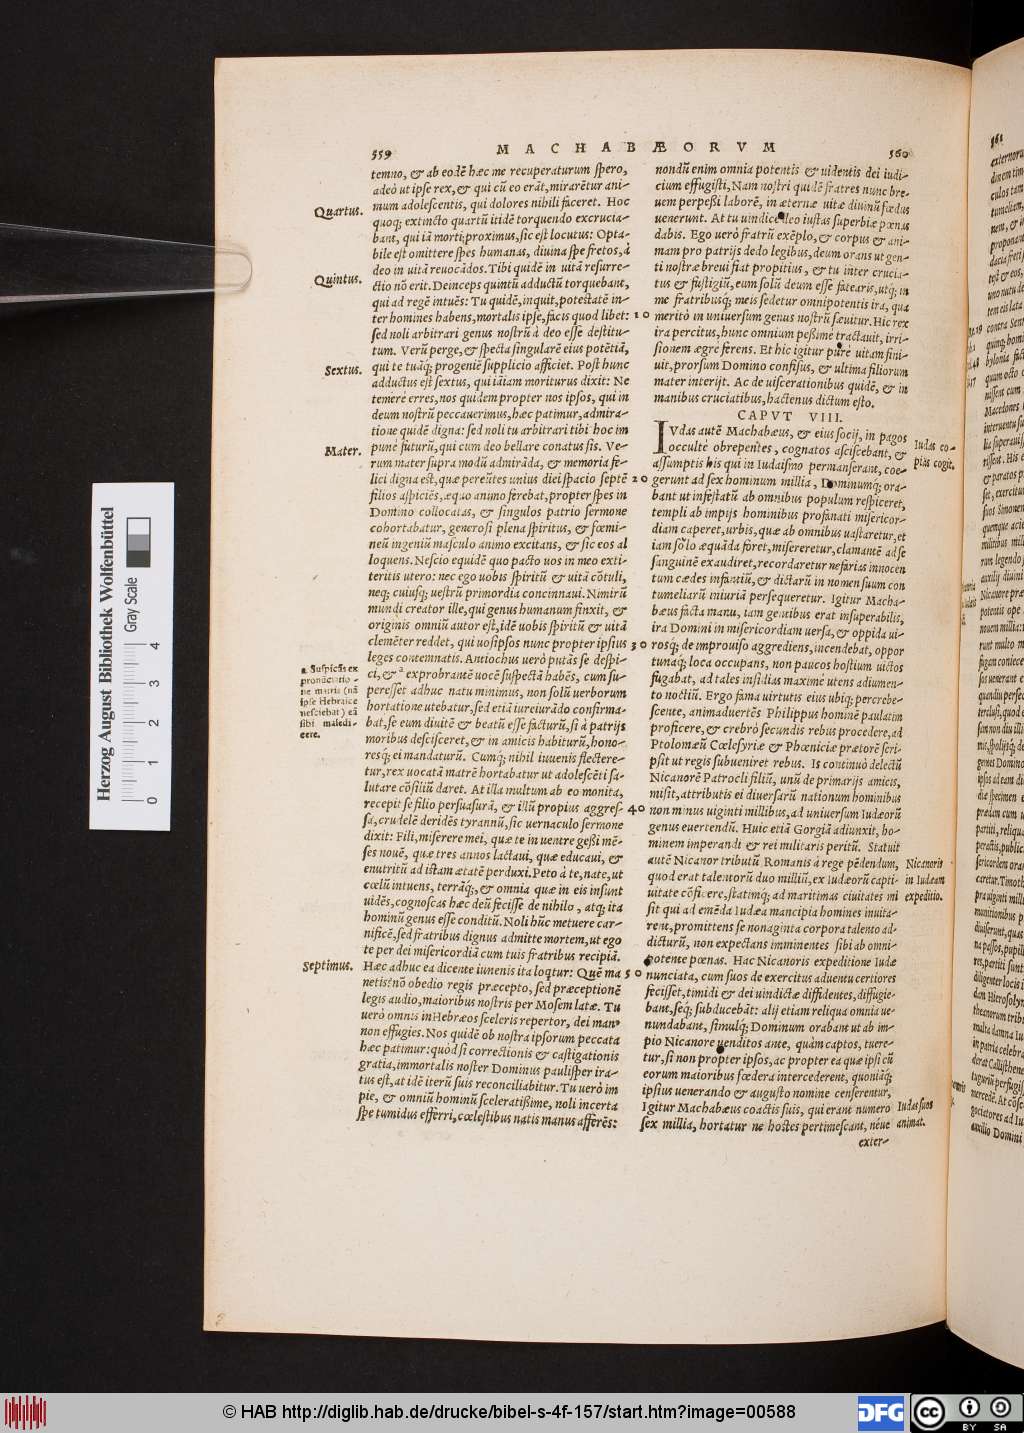 559 MACHABÆORVM 560
temno, & ab eodē hæc me recuperaturum ſpero,
adeò ut ipſe rex, & qui cū eo erāt, mirarētur ani-
mum adoleſcentis, qui dolores nihili faceret. Hoc
Quartus.
quoq; extincto quartū itidē torquendo excrucia-
bant, qui iā morti proximus, ſic eſt locutus: Opta-
bile eſt omittere ſpes humanas, diuina ſpe fretos, à
deo in uitā reuocādos. Tibi quidē in uitā reſurre-
Quintus.
ctio nō erit. Deinceps quintū adductū torquebant,
qui ad regē intuēs: Tu quidē, inquit, poteſtatē in-
ter homines habens, mortalis ipſe, facis quod libet: 10
ſed noli arbitrari genus noſtrū à deo eſſe deſtitu-
tum. Verū perge, & ſpecta ſingularē eius potētiā,
qui te tuāq; progeniē ſupplicio afficiet. Poſt hunc
Sextus.
adductus eſt ſextus, qui iāiam moriturus dixit: Ne
temerè erres, nos quidem propter nos ipſos, qui in
deum noſtrū peccauerimus, hæc patimur, admira-
tione quidē digna: ſed noli tu arbitrari tibi hoc im
pune futurū, qui cum deo bellare conatus ſis. Ve-
Mater.
rum mater ſupra modū admirāda, & memoria fe-
lici digna eſt, quæ pereūtes unius diei ſpacio ſeptē 20
filios aſpiciēs, æquo animo ferebat, propter ſpes in
Domino collocatas, & ſingulos patrio ſermone
cohortabatur, generoſi plena ſpiritus, & fœmi-
neū ingeniū maſculo animo excitans, & ſic eos al
loquens. Neſcio equidē quo pacto uos in meo exti-
teritis utero: nec ego uobis ſpiritū & uitā cōtuli,
neq; cuiuſq; ueſtrū primordia concinnaui. Nimirū
mundi creator ille, qui genus humanum finxit, &
originis omniū autor eſt, idē uobis ſpiritū & uitā
clemēter reddet, qui uoſipſos nunc propter ipſius 30
leges contemnatis. Antiochus uerò putās ſe deſpi-
a. Suſpicās ex
pronūciatio-
ne matris (nā
ipſe Hebraice
neſciebat) eā
ſibi maledi-
cere.
ci, & a exprobrantē uocē ſuſpectā habēs, cum ſu-
pereſſet adhuc natu minimus, non ſolū uerborum
hortatione utebatur, ſed etiā iureiurādo confirma-
bat, ſe eum diuitē & beatū eſſe facturū, ſi à patrijs
moribus deſciſceret, & in amicis habiturū, hono-
resq; ei mandaturū. Cumq; nihil iuuenis flectere-
tur, rex uocatā matrē hortabatur ut adoleſcēti ſa-
lutare cōſiliū daret. At illa multum ab eo monita,
recepit ſe filio perſuaſurā, & illū propius aggreſ- 40
ſa, crudelē deridēs tyrannū, ſic uernaculo ſermone
dixit: Fili, miſerere mei, quæ te in uentre geſsi mē-
ſes nouē, quæ tres annos lactaui, quæ educaui, &
enutritū ad iſtam ætatē perduxi. Peto à te, nate, ut
cœlū intuens, terrāq;, & omnia quæ in eis inſunt
uidēs, cognoſcas hæc deū feciſſe de nihilo, atq; ita
hominū genus eſſe conditū. Noli hūc metuere car-
nificē, ſed fratribus dignus admitte mortem, ut ego
te per dei miſericordiā cum tuis fratribus recipiā.
Septimus.
Hæc adhuc ea dicente iuuenis ita loqtur: Quē ma 50
netis? nō obedio regis præcepto, ſed præceptionē
legis audio, maioribus noſtris per Moſem latæ. Tu
uerò omnis in Hebræos ſceleris repertor, dei man?
non effugies. Nos quidē ob noſtra ipſorum peccata
hæc patimur: quòd ſi correctionis & caſtigationis
gratia, immortalis noſter Dominus pauliſper ira-
tus eſt, at idē iterū ſuis reconciliabitur. Tu uerò im
pie, & omniū hominū ſceleratiſsime, noli incerta
ſpe tumidus efferri, cœleſtibus natis manus afferēs:
nondū enim omnia potentis & uidentis dei iudi-
cium effugiſti, Nam noſtri quidē fratres nunc bre-
uem perpeſsi laborē, in æternæ uitæ diuinū fœdus
uenerunt. At tu uindice deo iuſtas ſuperbiæ pœnas
dabis. Ego uerò fratrū exēplo, & corpus & ani-
mam pro patrijs dedo legibus, deum orans ut gen-
ti noſtræ breui fiat propitius, & tu inter crucia-
tus & fuſtigiū, eum ſolū deum eſſe fatearis, utq; in
me fratribusq; meis ſedetur omnipotentis ira, quæ
meritò in uniuerſum genus noſtrū ſæuitur. Hic rex
ira percitus, hunc omnium peſsimè tractauit, irri-
ſionem ægre ferens. Et hic igitur purè uitam fini-
uit, prorſum Domino confiſus, & ultima filiorum
mater interijt. Ac de uiſcerationibus quidē, & in
manibus cruciatibus, hactenus dictum eſto.
CAPVT VIII.
IVdas autē Machabæus, & eius ſocij, in pagos
Iudas co-
pias cogit.
occultè obrepentes, cognatos aſciſcebant, &
aſſumptis his qui in Iudaiſmo permanſerant, coe-
gerunt ad ſex hominum millia, Dominumq; ora-
bant ut infeſtatū ab omnibus populum reſpiceret,
templi ab impijs hominibus profanati miſericor-
diam caperet, urbis, quæ ab omnibus uaſtaretur, et
iam ſolo æquāda foret, misereretur, clamantē ad ſe
ſanguinē exaudiret, recordaretur nefarias innocen
tum cædes infantiū, & dictarū in nomen ſuum con
tumeliarū iniuriā perſequeretur. Igitur Macha-
bæus facta manu, iam gentibus erat inſuperabilis,
ira Domini in miſericordiam uerſa, & oppida ui-
rosq; de improuiſo aggrediens, incendebat, oppor
tunaq; loca occupans, non paucos hoſtium uictos
fugabat, ad tales inſidias maximè utens adiumen-
to noctiū. Ergo fama uirtutis eius ubiq; percrebe-
ſcente, animaduertēs Philippus hominē paulatim
proficere, & crebrò ſecundis rebus procedere, ad
Ptolomæū Cœleſyriæ & Phœniciæ prætorē ſcri-
pſit ut regis ſubueniret rebus. Is continuò delectū
Nicanorē Patrocli filiū, unū de primarijs amicis,
miſit, attributis ei diuerſarū nationum hominibus
non minus uiginti millibus, ad uniuerſum Iudæorū
genus euertendū. Huic etiā Gorgiā adiunxit, ho-
minem imperandi & rei militaris peritū. Statuit
Nicanoris
in Iudæam
expeditio.
autē Nicanor tributū Romanis à rege pēdendum,
quod erat talentorū duo milliū, ex Iudæorū capti-
uitate cōficere, ſtatimq; ad maritimas ciuitates mi
ſit qui ad emēda Iudæa mancipia homines inuita-
rent, promittens ſe nonaginta corpora talento ad-
dicturū, non expectans imminentes ſibi ab omni-
potente pœnas. Hac Nicanoris expeditione Iudæ
nunciata, cum ſuos de exercitus aduentu certiores
feciſſet, timidi & dei uindictæ diffidentes, diffugie-
bant, ſeq; ſubducebāt: alij etiam reliqua omnia ue-
nundabant, ſimulq; Dominum orabant ut ab im-
pio Nicanore uenditos ante, quàm captos, tuere-
tur, ſi non propter ipſos, ac propter ea quæ ipſi cū
eorum maioribus fœdera intercederent, quoniāq;
ipſius uenerando & auguſto nomine cenſerentur,
Iudas ſuos
animat.
Igitur Machabæus coactis ſuis, qui erant numero
ſex millia, hortatur ne hoſtes pertimeſcant, néue
exter-
561
Herzog August Bibliothek Wolfenbüttel
Gray Scale
0 1 2 3 4
© HAB http://diglib.hab.de/drucke/bibel-s-4f-157/start.htm?image=00588
DFG
cc
BY SA